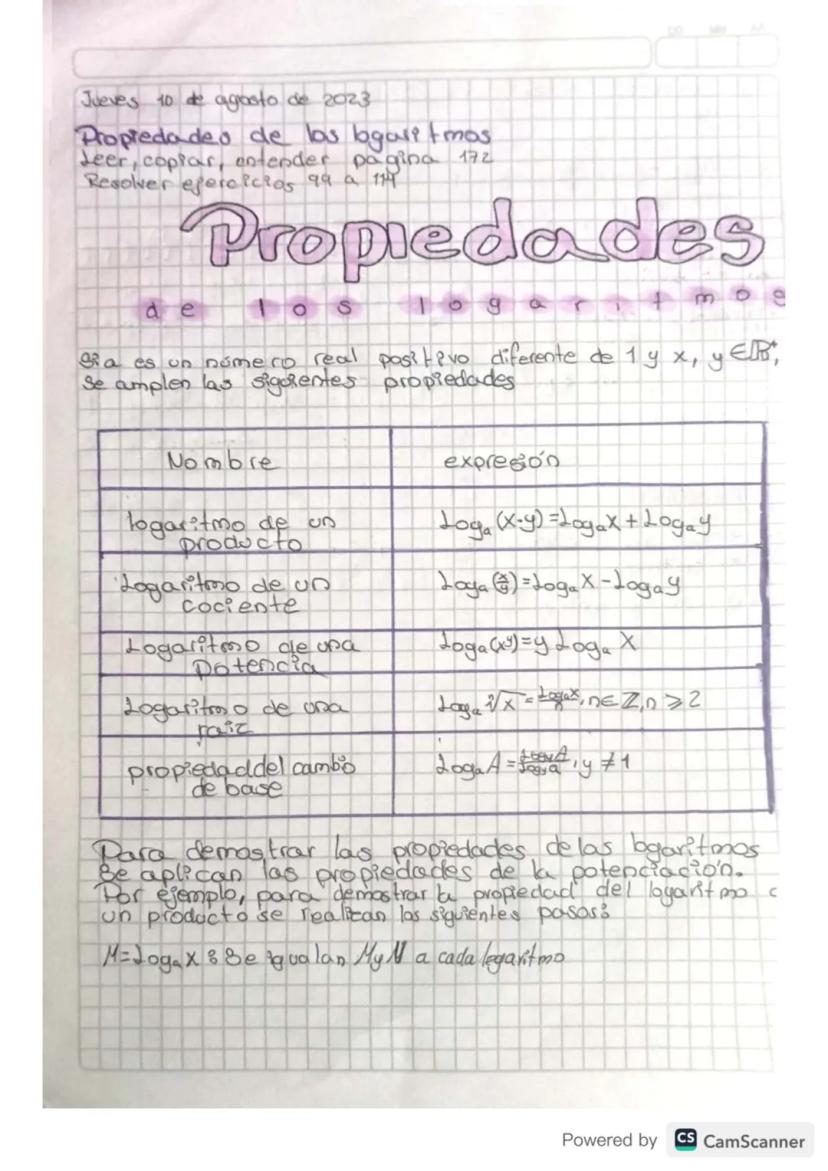 DD MM AA
Jueves 10 de agosto de 2023
Propiedades de los logaritmos
Leer, copiar, entender pagina 172
Resolver ejercicios 99 a 114
Propiedades
de los logaritmos
Si a es un número real positivo diferente de 1 y x, y ∈ ℝ⁺,
se amplen las siguientes propiedades
Nombre expresión
logaritmo de un producto Loga (x·y) = Logax + Logay
Logaritmo de un cociente Loga (x/y) = Loga x - Logay
Logaritmo de una Potencia Loga (xʸ) = y Loga x
Logaritmo de una raiz Loga ⁿ√x = Logax/n, n ∈ Z, n ≥ 2
propiedad del cambio de base Loga A = LogyA/Logya, y ≠ 1
Para demostrar las propiedades de las logaritmos
Se aplican las propiedades de la potenciación.
Por ejemplo, para demostrar la propiedad del logaritmo
un producto se realizan los siguientes pasos:
M = Loga x : Se igualan M y N a cada logaritmo
Powered by CS CamScanner